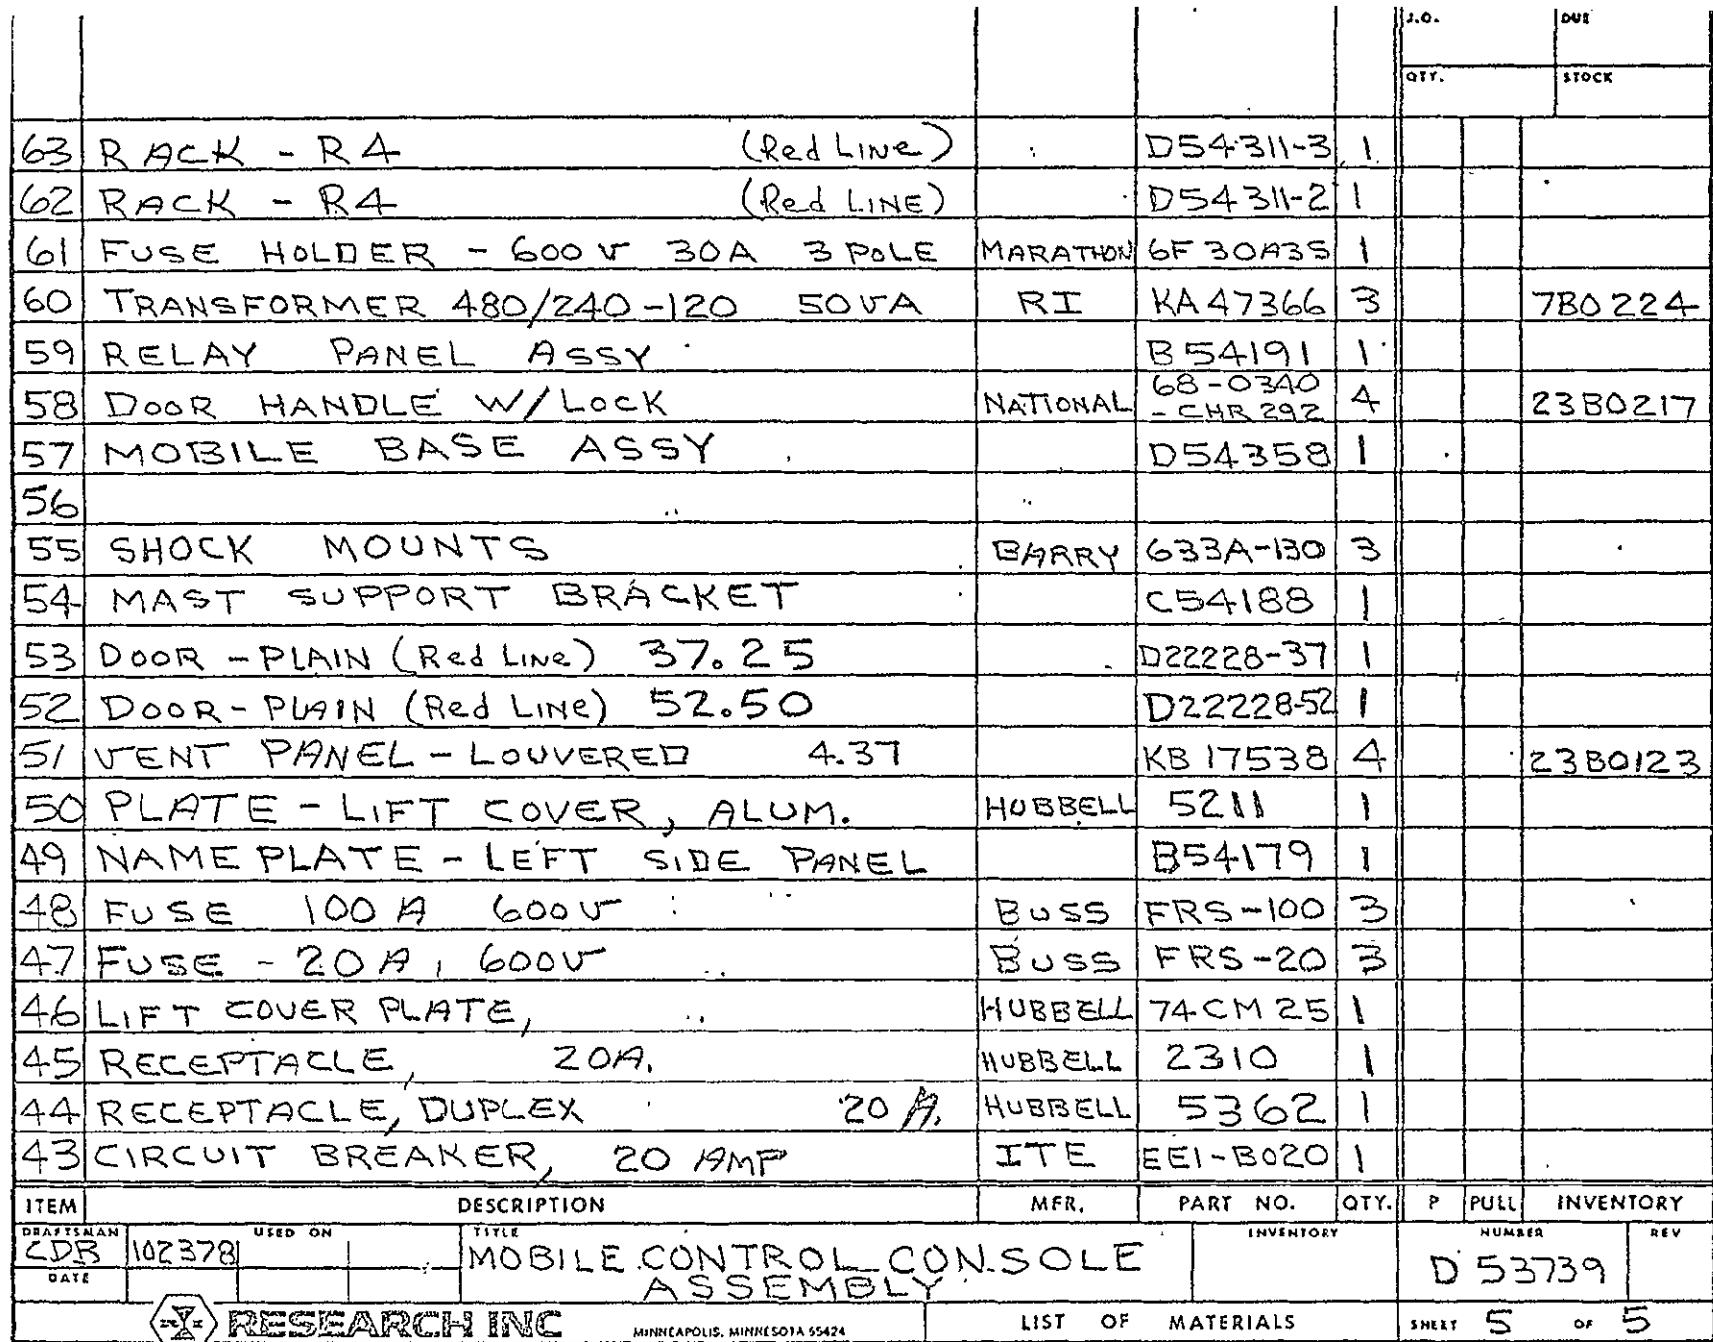 J.O. DUE
QTY. STOCK
63 RACK - R4 (Red Line) D54311-3 1
62 RACK - R4 (Red LINE) D54311-2 1
61 FUSE HOLDER - 600V 30A 3 POLE MARATHON 6F30A3S 1
60 TRANSFORMER 480/240-120 50VA RI KA47366 3 7B0224
59 RELAY PANEL ASSY B54191 1
58 DOOR HANDLE W/LOCK NATIONAL 68-0340 - CHR 292 4 23B0217
57 MOBILE BASE ASSY D54358 1
56
55 SHOCK MOUNTS BARRY 633A-130 3
54 MAST SUPPORT BRACKET C54188 1
53 DOOR - PLAIN (Red Line) 37.25 D22228-37 1
52 DOOR - PLAIN (Red Line) 52.50 D22228-52 1
51 VENT PANEL - LOUVERED 4.37 KB17538 4 23B0123
50 PLATE - LIFT COVER, ALUM. HUBBELL 5211 1
49 NAME PLATE - LEFT SIDE PANEL B54179 1
48 FUSE 100A 600V BUSS FRS-100 3
47 FUSE - 20A, 600V BUSS FRS-20 3
46 LIFT COVER PLATE, HUBBELL 74CM25 1
45 RECEPTACLE, 20A. HUBBELL 2310 1
44 RECEPTACLE, DUPLEX 20 A. HUBBELL 5362 1
43 CIRCUIT BREAKER, 20 AMP ITE EE1-B020 1
ITEM DESCRIPTION MFR. PART NO. QTY. P PULL INVENTORY
DRAFTSMAN USED ON TITLE INVENTORY NUMBER REV
CDB 102378 MOBILE CONTROL CONSOLE D 53739
DATE ASSEMBLY
RESEARCH INC MINNEAPOLIS, MINNESOTA 55424 LIST OF MATERIALS SHEET 5 OF 5